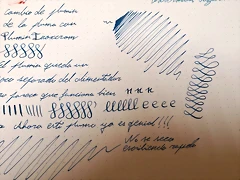 Cambio de plumín
de la pluma con
Plumin Inoxcrom
El plumín queda un
poco separado del alimentador
parece que funciona bien
eeeeee eeee
Ahora esta pluma ya es genial!!!
No se seca
escribiendo rápido